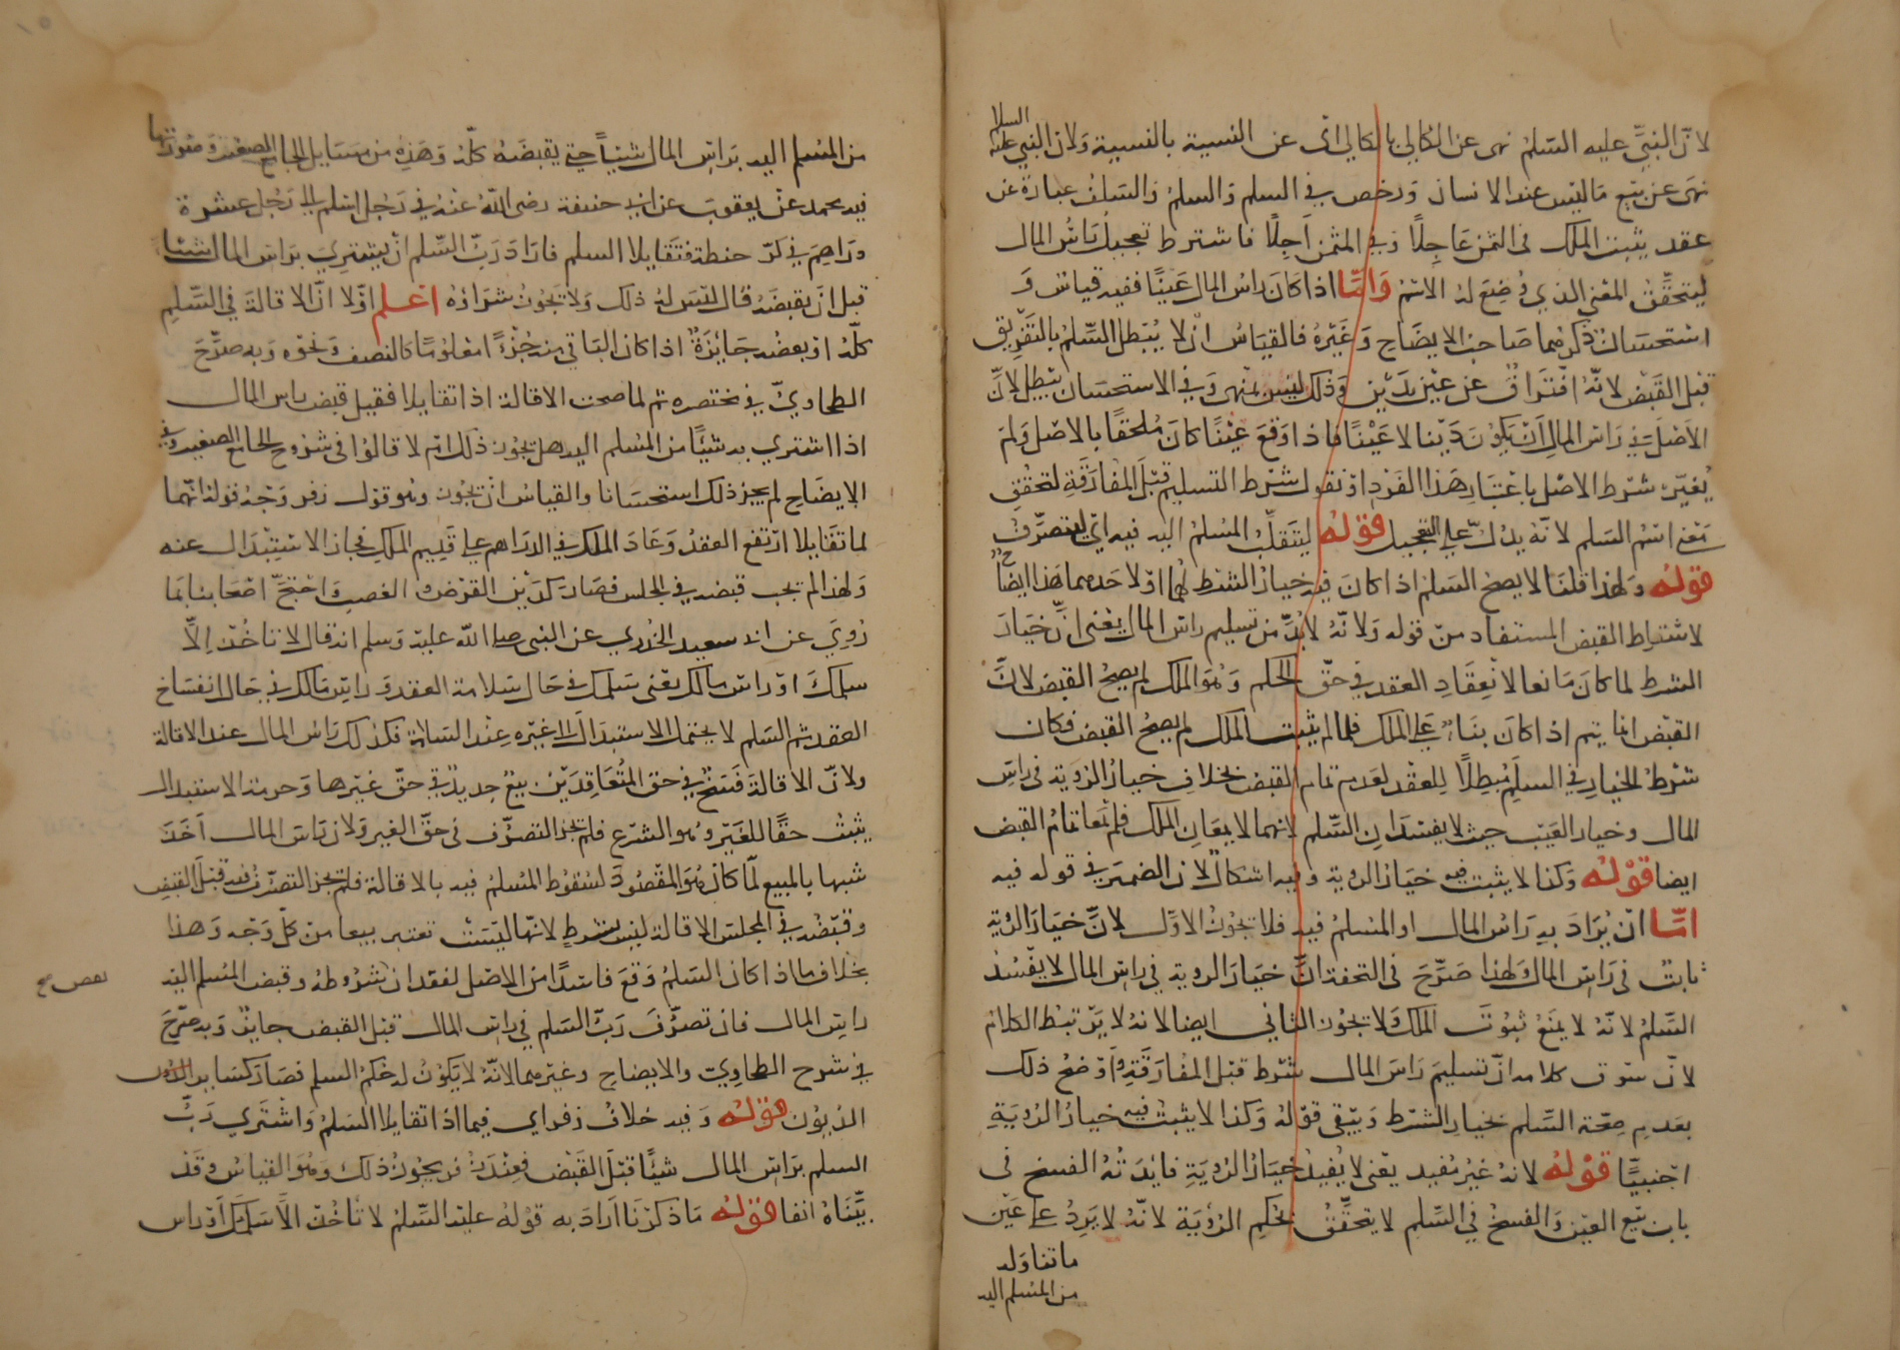 لان النبي عليه السلم نهى عن الكالي بالكالي اى عن النسية بالنسية ولان النبي عليه السلام
نهى عن بيع ما ليس عند الانسان ورخص في السلم والسلم والسلف عبارة عن
عقد يثبت الملك فى الثمن عاجلًا وفي المثمن اجلًا فاشترط تعجيل راس المال
ليتحقق المعني الذي وضع له الاسم واما اذا كان راس المال عينًا ففيه قياس و
استحسان ذكرهما صاحب الايضاح وغيره فالقياس ان لا يبطل السلم بالتفريق
قبل القبض لانه افتراق عن عين بدين وذلك ليس بمنهى وفي الاستحسان يبطل لان
الاصل في راس المال ان يكون دينا لا عينا فاذا وقع عينا كان ملحقا بالاصل ولم
يغير شرط الاصل باعتبار هذا الفرد او نقول شرط التسليم قبل المفارقة لتحقق
معنى اسم السلم لانه يدل على التعجيل قوله ليتقلب المسلم اليه فيه اي ليتصرف
قوله ولهذا قلنا لا يصح السلم اذا كان فيه خيار الشرط لهما او لاحدهما هذا ايضاح
لاشتراط القبض المستفاد من قوله ولانه لا بد من تسليم راس المال يعنى ان خيار
الشرط لما كان مانعا لانعقاد العقد في حق الحكم وهو الملك لم يصح القبض لان
القبض انما يتم اذا كان بناء على الملك فلما لم يثبت الملك لم يصح القبض فكان
شرط الخيار في السلم مبطلًا للعقد لعدم تمام القبض بخلاف خيار الروية فى راس
المال وخيار العيب حيث لا يفسدان السلم لانهما لا يمنعان الملك فلم يمنعا تمام القبض
ايضا قوله وكذا لا يثبت فيه خيار الروية وفيه اشكال لان الضمير في قوله فيه
اما ان يراد به راس المال او المسلم فيه فلا يجوز الاول لان خيار الروية
ثابت فى راس المال ولهذا صرح فى التحفة ان خيار الروية في راس المال لا يفسد
السلم لانه لا يمنع ثبوت الملك ولا يجوز الثاني ايضا لانه لا يرتبط الكلام
لان سوق كلامه ان تسليم راس المال شرط قبل المفارقة واوضح ذلك
بعدم صحة السلم بخيار الشرط ويبقى قوله وكذا لا يثبت فيه خيار الروية
اجنبيًا قوله لانه غير مفيد يعنى لا يفيد خيار الروية فايدته الفسخ فى
باب بيع العين والفسخ في السلم لا يتحقق بحكم الروية لانه لا يرد على عين
ما تناوله
من المسلم اليه
من المسلم اليه براس المال شيئًا حتى يقبضه كله وهذه من مسايل الجامع الصغير وصورتها
فيه محمد عن يعقوب عن ابي حنيفة رضى الله عنه في رجل اسلم الى رجل عشرة
دراهم في كر حنطة فتقايلا السلم فاراد رب السلم ان يشتري براس المال شيئا
قبل ان يقبضه قال ليس له ذلك ولا يجوز شراؤه اعلم اولا ان الاقالة في السلم
كله او بعضه جائزة اذا كان الباقي منه جزءً معلومًا كالنصف ونحوه وبه صرح
الطحاوي في مختصره ثم لما صحت الاقالة اذا تقايلا فقبل قبض راس المال
اذا اشتري به شيئًا من المسلم اليه هل يجوز ذلك ام لا قالوا فى شروح الجامع الصغير وفي
الايضاح لم يجز ذلك استحسانا والقياس ان يجوز وهو قول زفر وجه قوله انهما
لما تقايلا ارتفع العقد وعاد الملك في الدراهم على قديم الملك فجاز الاستبدال عنه
ولهذا لم يجب قبضه في المجلس فصار كدين القرض والغصب واحتج اصحابنا بما
روي عن ابى سعيد الخدري عن النبى صلى الله عليه وسلم انه قال لا تاخذ الا
سلمك او راس مالك يعنى سلمك في حال سلامة العقد وراس مالك في حال انفساخ
العقد ثم السلم لا يحتمل الاستبدال الى غيره عند السلامة فكذلك راس المال عند الاقالة
ولان الاقالة فسخ في حق المتعاقدين بيع جديد في حق غيرها وحرمة الاستبدال
يثبت حقًا للغير وهو الشرع فلم يجز التصرف فى حق الغير ولان راس المال اخذ
شبها بالمبيع لما كان هو المقصود لسقوط المسلم فيه بالاقالة فلم يجز التصرف فيه قبل القبض
وقبضه في المجلس الاقالة ليس بشرط لانها ليست تعتبر بيعا من كل وجه وهذا
بخلاف ما اذا كان السلم وقع فاسدًا من الاصل لفقدان شروطه وقبض المسلم اليه
راس المال فان تصرف رب السلم في راس المال قبل القبض جايز وبه صرح
في شرح الطحاوي والايضاح وغيرهما لانه لا يكون له حكم السلم فصار كساير
الديون قوله وفيه خلاف زفر اي فيما اذا تقايلا السلم واشتري رب
السلم براس المال شيئًا قبل القبض فعند زفر يجوز ذلك وهو القياس وقد
بيناه انفا قوله ما ذكرنا اراد به قوله عليه السلم لا تاخذ الا سلمك او راس